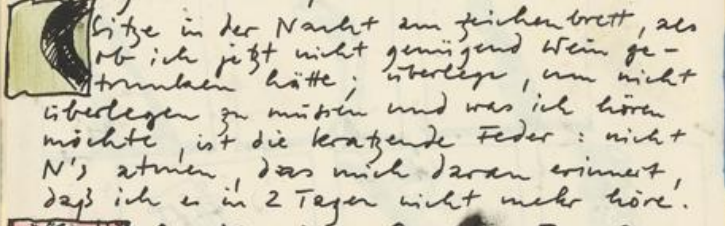 Sitze in der Nacht am Zeichenbrett, als
ob ich jetzt nicht genügend Wein ge-
trunken hätte; überlege, um nicht
überlegen zu müssen und was ich hören
möchte, ist die kratzende Feder: nicht
N's atmen, das mich daran erinnert,
daß ich es in 2 Tagen nicht mehr höre.